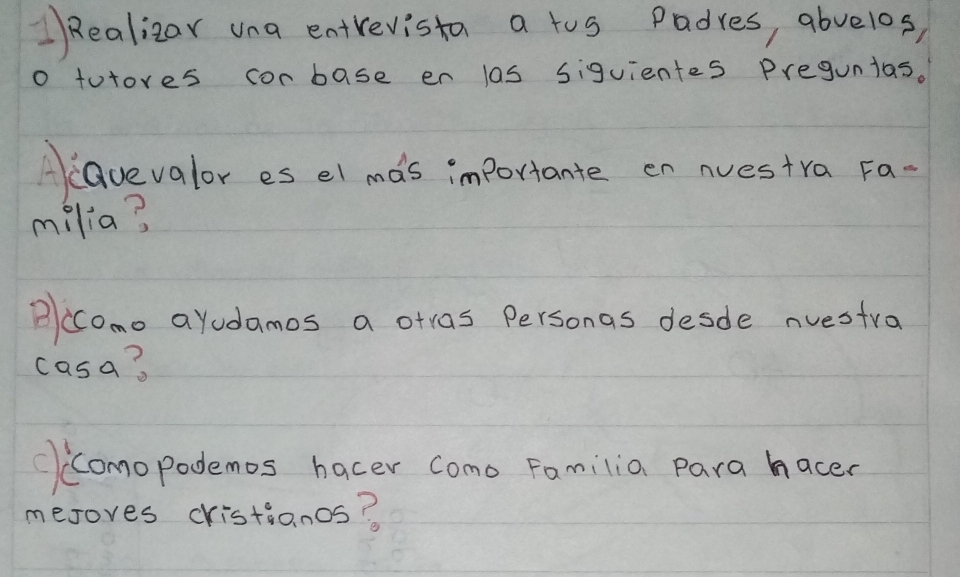 1) Realizar una entrevista a tus Padres, abuelos,
o tutores con base en las siguientes Preguntas.
A) ¿Que valor es el más imPortante en nuestra Fa-
milia?
B) ¿Como ayudamos a otras Personas desde nuestra
casa?
C) ¿Como podemos hacer como Familia Para hacer
mejores cristianos?